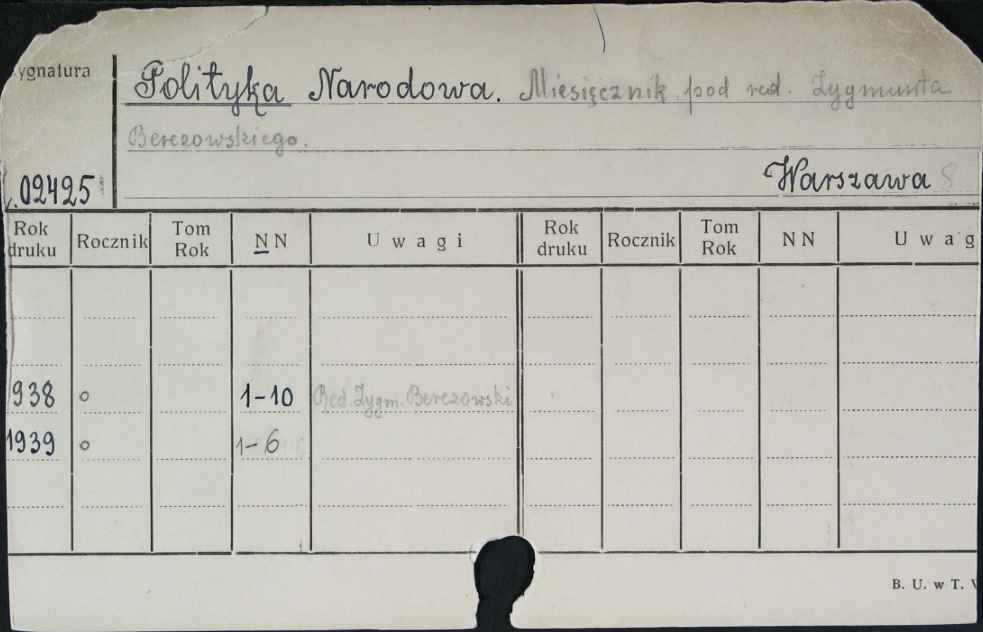 ygnatura
Polityka Narodowa. Miesięcznik pod red. Zygmunta
Berezowskiego.
02425
Warszawa
Rok druku Rocznik Tom Rok NN Uwagi Rok druku Rocznik Tom Rok NN Uwag
938 o 1-10 Red. Zygm. Berezowski
1939 o 1-6
B. U. w T.